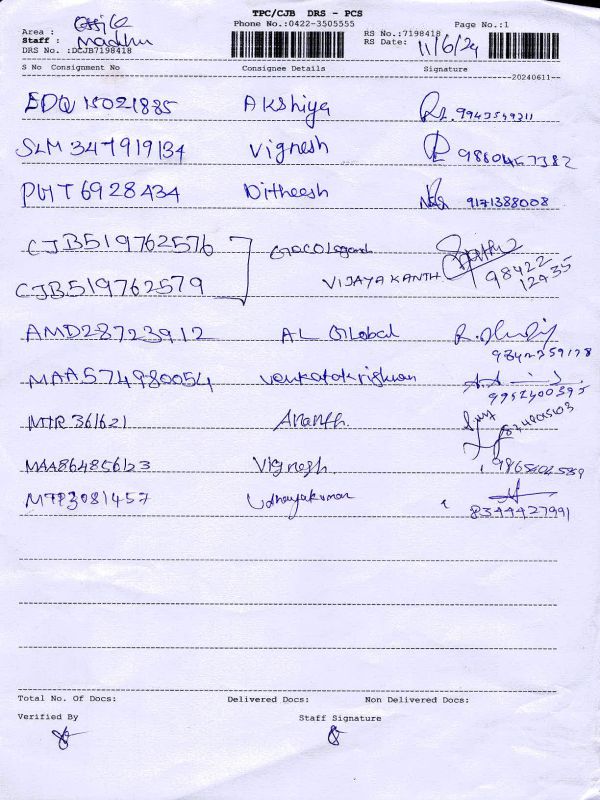 TPC/CJB DRS - PCS
Area : Office Phone No.:0422-3505555 Page No.:1
Staff : Madhu RS No.:7198418
DRS No. :DCJB7198418 RS Date: 11/6/24
S No Consignment No Consignee Details Signature
20240611
EDQ 15021885 Akshiya 9943549311
SLM 347919134 Vignesh 9860457382
PMT 6928434 Nitheesh 9171388008
CJB519762576
VIJAYA KANTH 98422 12435
CJB519762579
AMD28723912 AL Global
MAA574980054 Venkatakrishnan 9952400395
MTR 361621 Ananth
MAA864856123 Vignesh
MTP3081457 Udhayakumar 8344427991
Total No. Of Docs: Delivered Docs: Non Delivered Docs:
Verified By Staff Signature